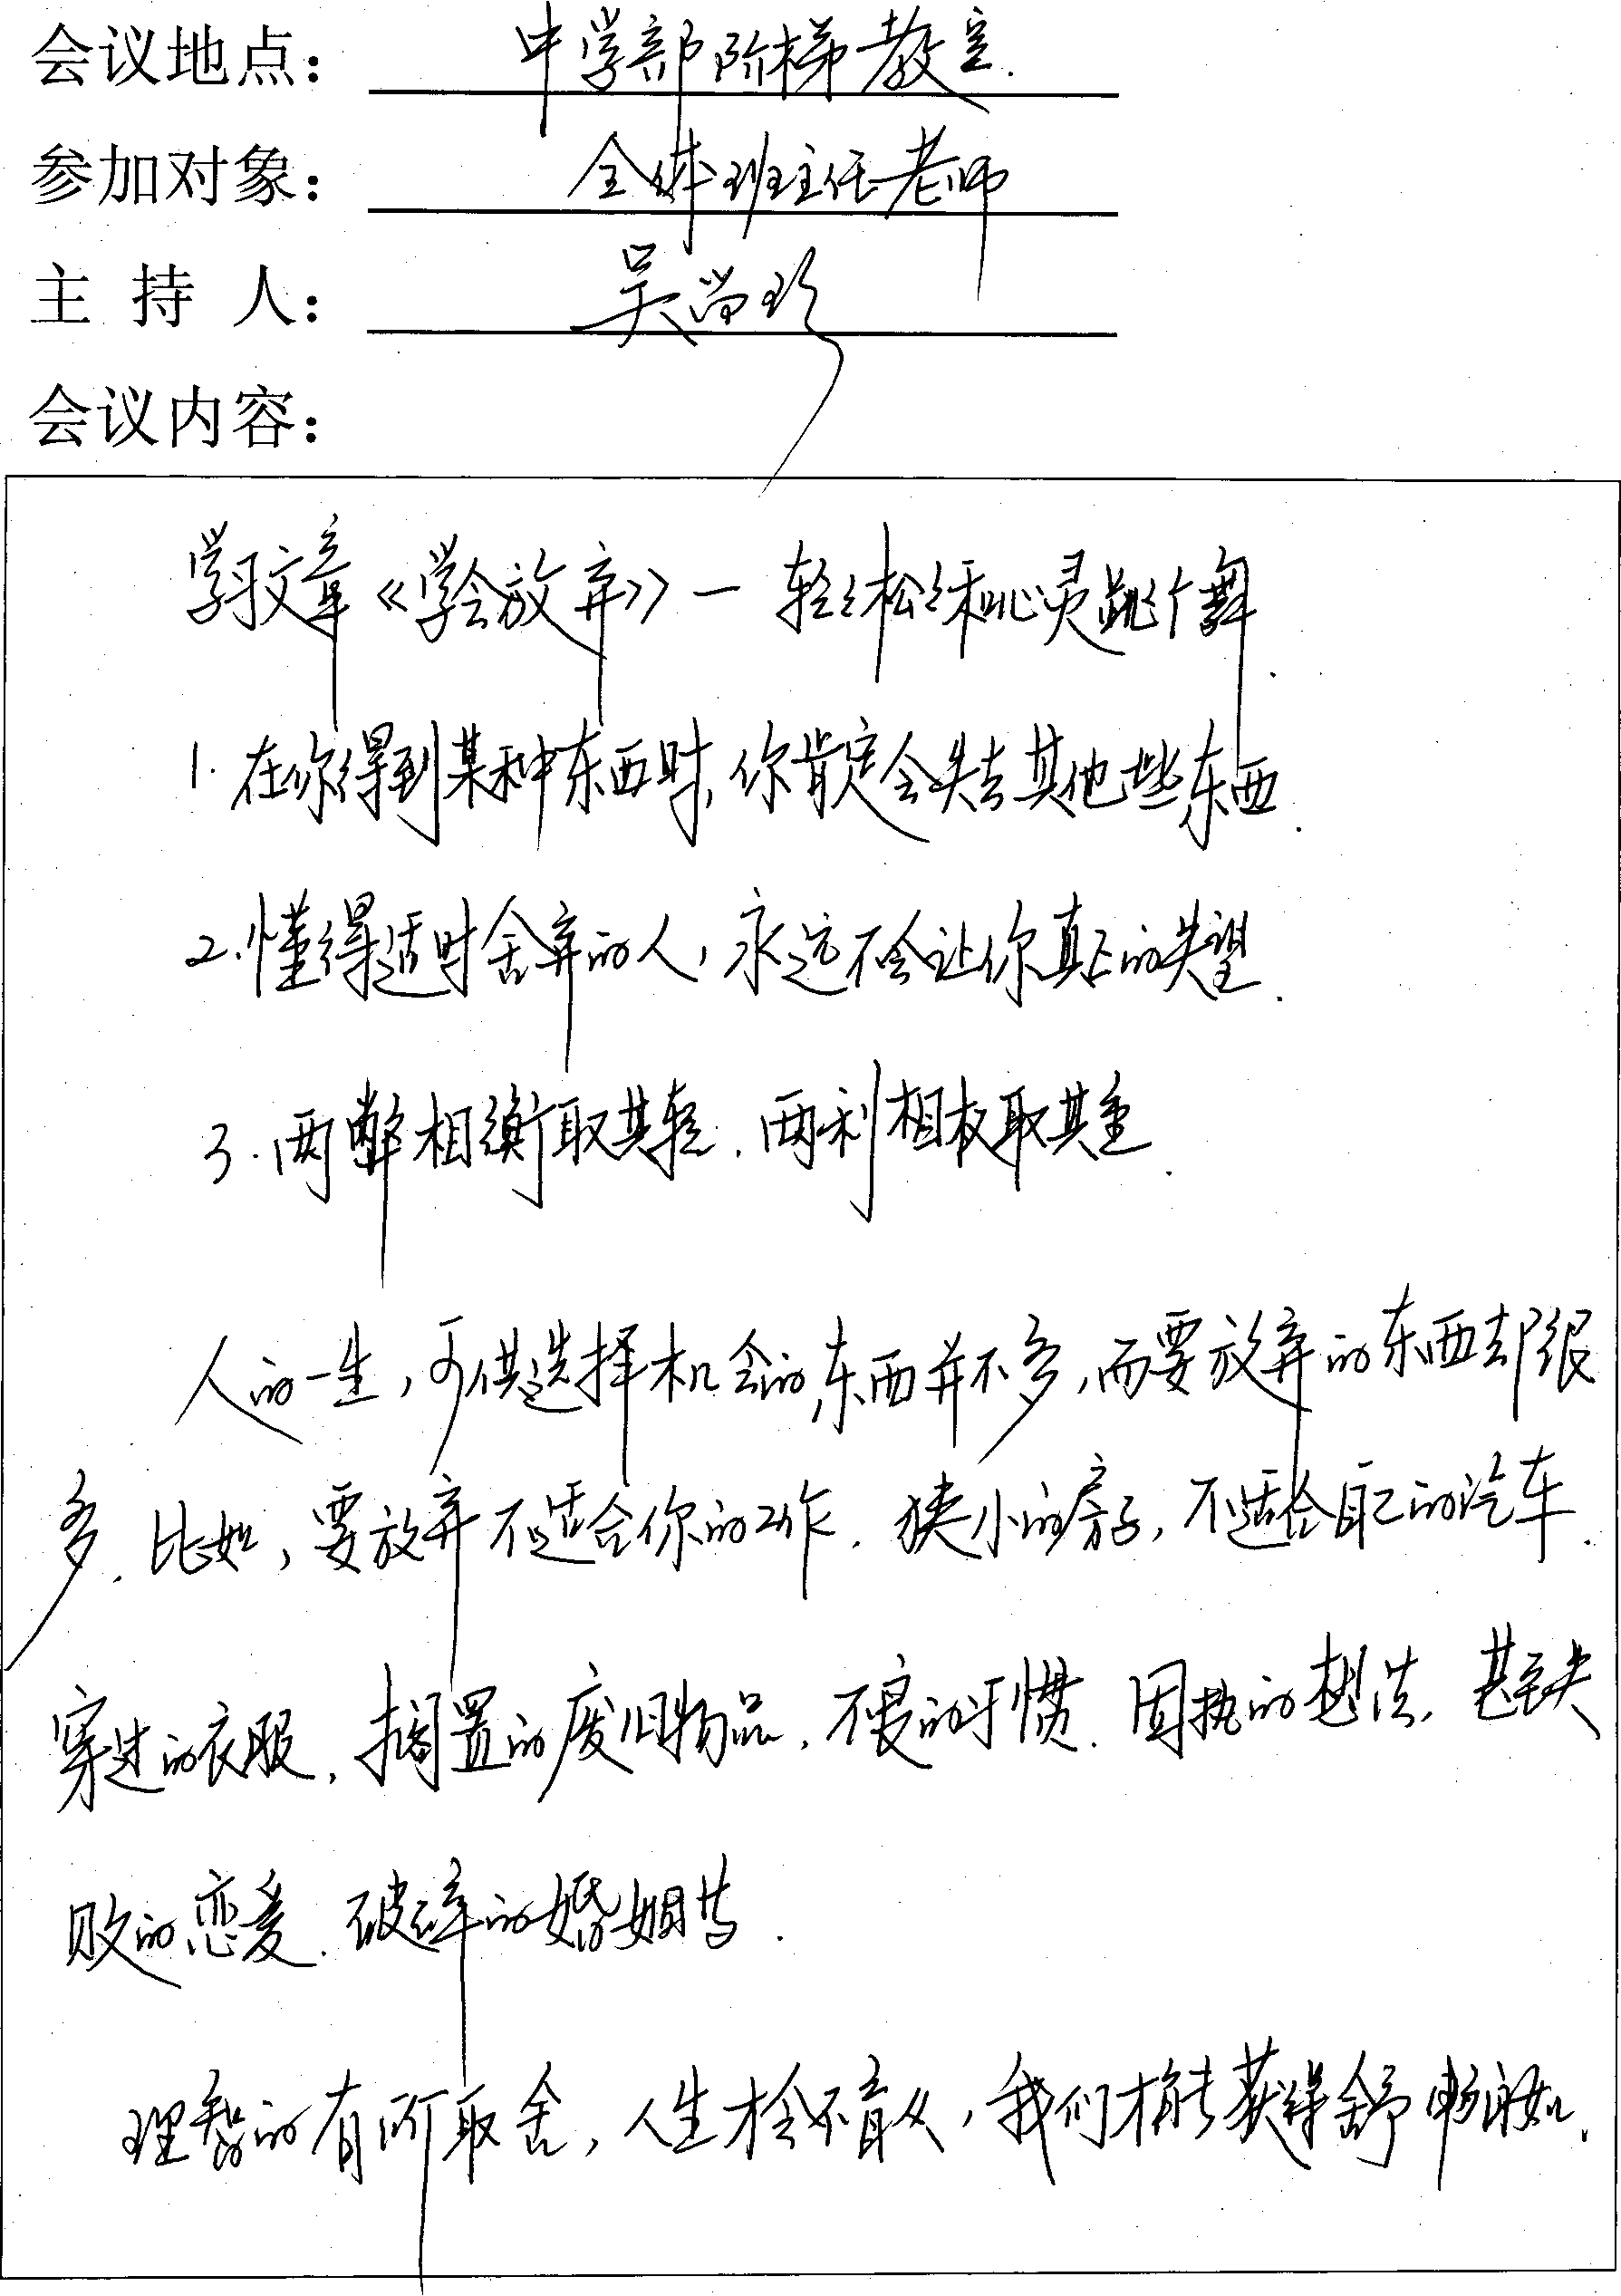 会议地点：中学部阶梯教室.
参加对象：全体班主任老师
主持人：吴尚珍
会议内容：
学习文章《学会放弃》—轻轻松松和心灵跳个舞.
1.在你得到某种东西时,你肯定会失去其他些东西.
2.懂得适时舍弃的人,永远不会让你真正的失望.
3.两弊相衡取其轻.两利相权取其重.
人的一生,可供选择机会的东西并不多,而要放弃的东西却很
多.比如,要放弃不适合你的工作.狭小的房子,不适合自己的汽车.
穿过的衣服.搁置的废旧物品.不良的习惯.固执的想法.甚至失
败的恋爱.破碎的婚姻等.
理智的有所取舍,人生才会不盲从,我们才能获得舒畅自如.